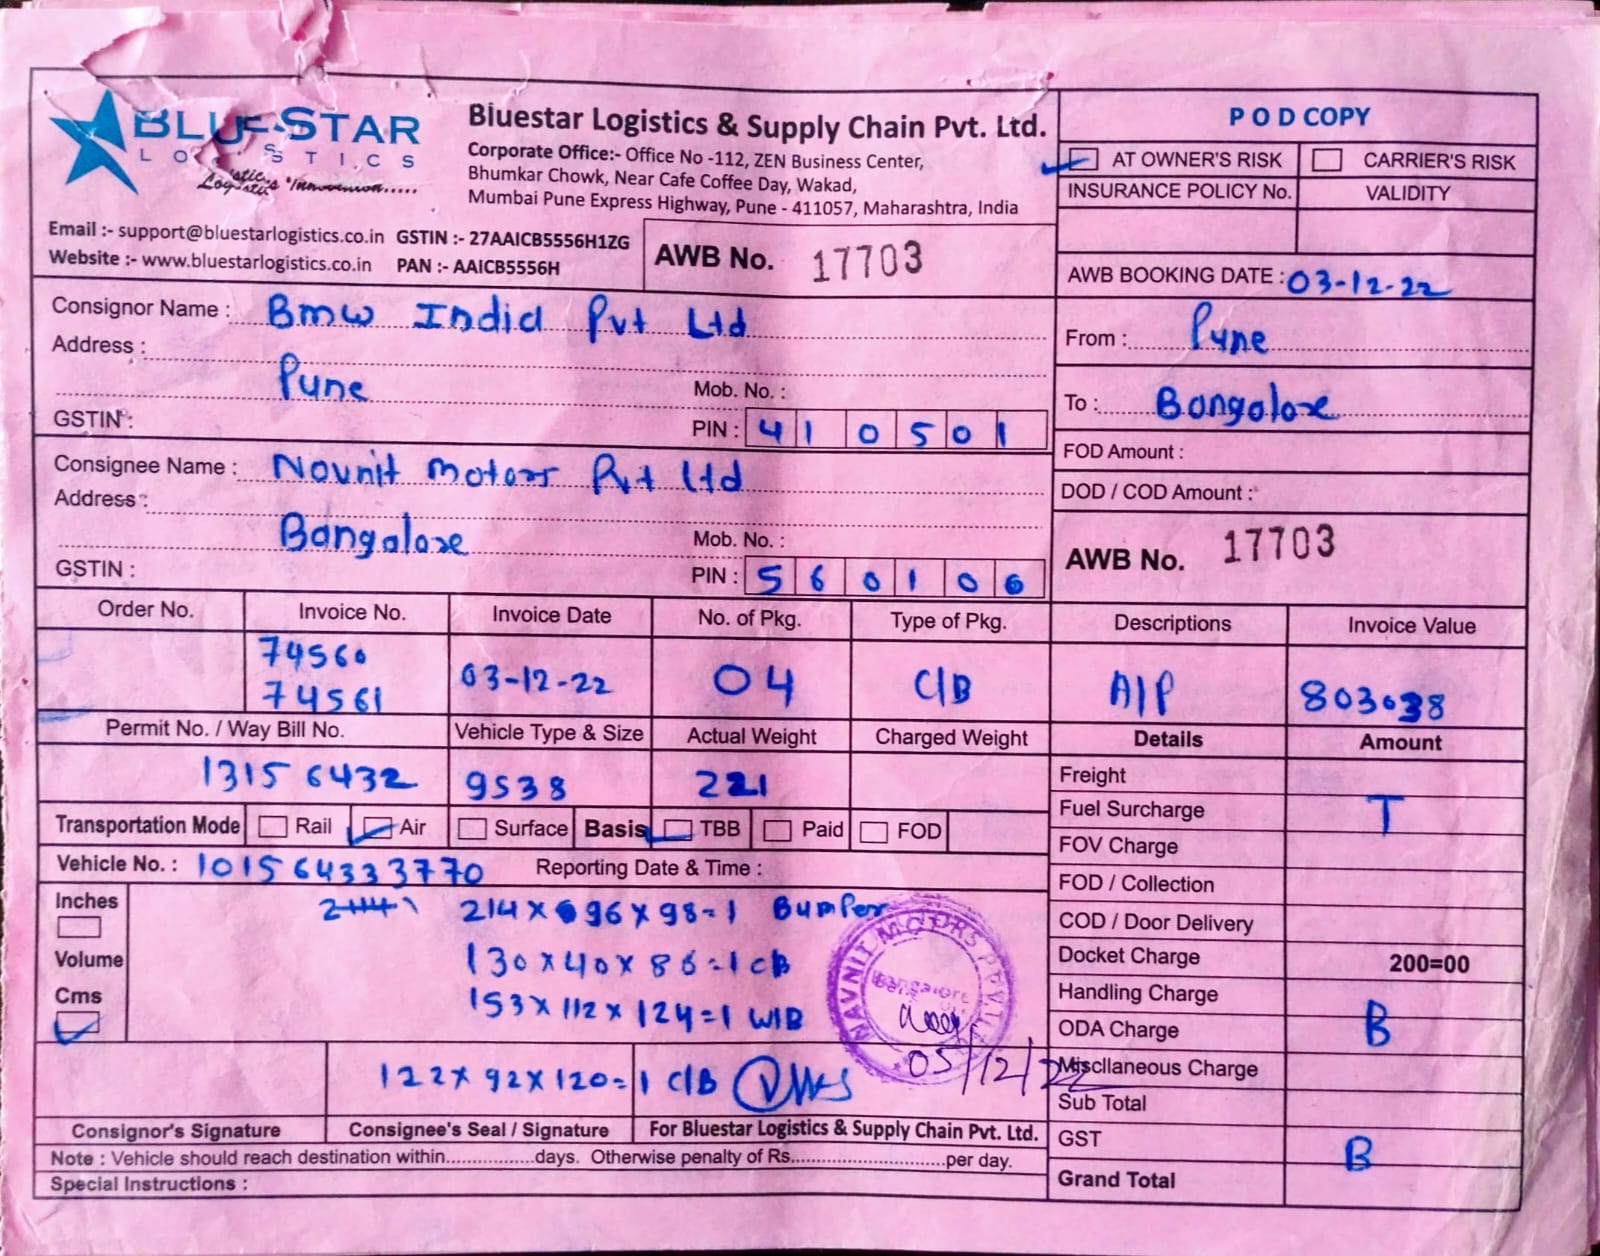 BLUE-STAR
LOGISTICS
Bluestar Logistics & Supply Chain Pvt. Ltd.
Corporate Office:- Office No -112, ZEN Business Center,
Bhumkar Chowk, Near Cafe Coffee Day, Wakad,
Mumbai Pune Express Highway, Pune - 411057, Maharashtra, India
Email :- support@bluestarlogistics.co.in GSTIN :- 27AAICB5556H1ZG
Website :- www.bluestarlogistics.co.in PAN :- AAICB5556H
AWB No. 17703
POD COPY
AT OWNER'S RISK CARRIER'S RISK
INSURANCE POLICY No. VALIDITY
AWB BOOKING DATE : 03-12-22
Consignor Name : Bmw India Pvt Ltd
Address :
Pune Mob. No. :
GSTIN : PIN : 410501
From : Pune
To : Bangalore
Consignee Name : Navnit Motors Pvt Ltd
Address :
Bangalore Mob. No. :
GSTIN : PIN : 560106
FOD Amount :
DOD / COD Amount :
AWB No. 17703
Order No. Invoice No. Invoice Date No. of Pkg. Type of Pkg. Descriptions Invoice Value
74560
74561 03-12-22 04 C/B A/P 803038
Permit No. / Way Bill No. Vehicle Type & Size Actual Weight Charged Weight Details Amount
13156432 9538 221
Transportation Mode Rail Air Surface Basis TBB Paid FOD
Vehicle No. : 101564333770 Reporting Date & Time :
Inches 214x96x98=1 Bumper
Volume 130x40x86=1 CB
Cms 153x112x124=1 W/B
122x92x120=1 C/B
NAVNIT MOTORS
Bangalore
05/12/22
Consignor's Signature Consignee's Seal / Signature For Bluestar Logistics & Supply Chain Pvt. Ltd.
Note : Vehicle should reach destination within.................days. Otherwise penalty of Rs.............................per day.
Special Instructions :
Freight
Fuel Surcharge T
FOV Charge
FOD / Collection
COD / Door Delivery
Docket Charge 200=00
Handling Charge
ODA Charge B
Miscllaneous Charge
Sub Total
GST B
Grand Total